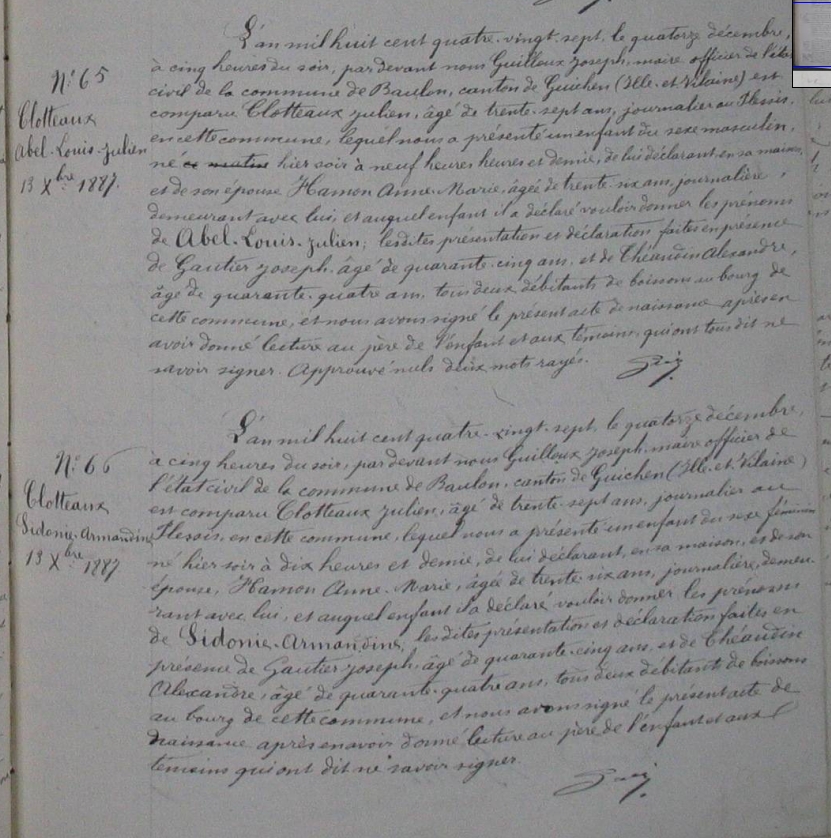 N° 65
Clotteaux
Abel-Louis-Julien
13 Xbre 1887.
L'an mil huit cent quatre-vingt-sept, le quatorze décembre,
à cinq heures du soir, par devant nous Guilloux Joseph, maire officier de l'état
civil de la commune de Baulon, canton de Guichen (Ille-et-Vilaine) est
comparu Clotteaux Julien, âgé de trente-sept ans, journalier au Plessis,
en cette commune, lequel nous a présenté un enfant du sexe masculin,
né ce matin hier soir à neuf heures heures et demie, de lui déclarant en sa maison,
et de son épouse Hamon Anne-Marie, âgée de trente-six ans, journalière,
demeurant avec lui, et auquel enfant il a déclaré vouloir donner les prénoms
de Abel-Louis-Julien; lesdites présentation et déclaration faites en présence
de Gautier Joseph, âgé de quarante-cinq ans, et de Théaudin Alexandre,
âgé de quarante-quatre ans, tous deux débitants de boissons au bourg de
cette commune, et nous avons signé le présent acte de naissance après en
avoir donné lecture au père de l'enfant et aux témoins, qui ont tous dit ne
savoir signer. Approuvé nuls deux mots rayés.
N° 66
Clotteaux
Sidonie-Armandine
13 Xbre 1887
L'an mil huit cent quatre-vingt-sept, le quatorze décembre,
à cinq heures du soir, par devant nous Guilloux Joseph, maire officier de
l'état civil de la commune de Baulon, canton de Guichen (Ille-et-Vilaine)
est comparu Clotteaux Julien, âgé de trente-sept ans, journalier au
Plessis, en cette commune, lequel nous a présenté un enfant du sexe féminin
né hier soir à dix heures et demie, de lui déclarant, en sa maison, et de son
épouse, Hamon Anne-Marie, âgée de trente-six ans, journalière, demeu-
rant avec lui, et auquel enfant il a déclaré vouloir donner les prénoms
de Sidonie-Armandine, lesdites présentation et déclaration faites en
présence de Gautier Joseph, âgé de quarante-cinq ans, et de Théaudin
Alexandre, âgé de quarante-quatre ans, tous deux débitants de boissons
au bourg de cette commune, et nous avons signé le présent acte de
naissance après en avoir donné lecture au père de l'enfant et aux
témoins qui ont dit ne savoir signer.